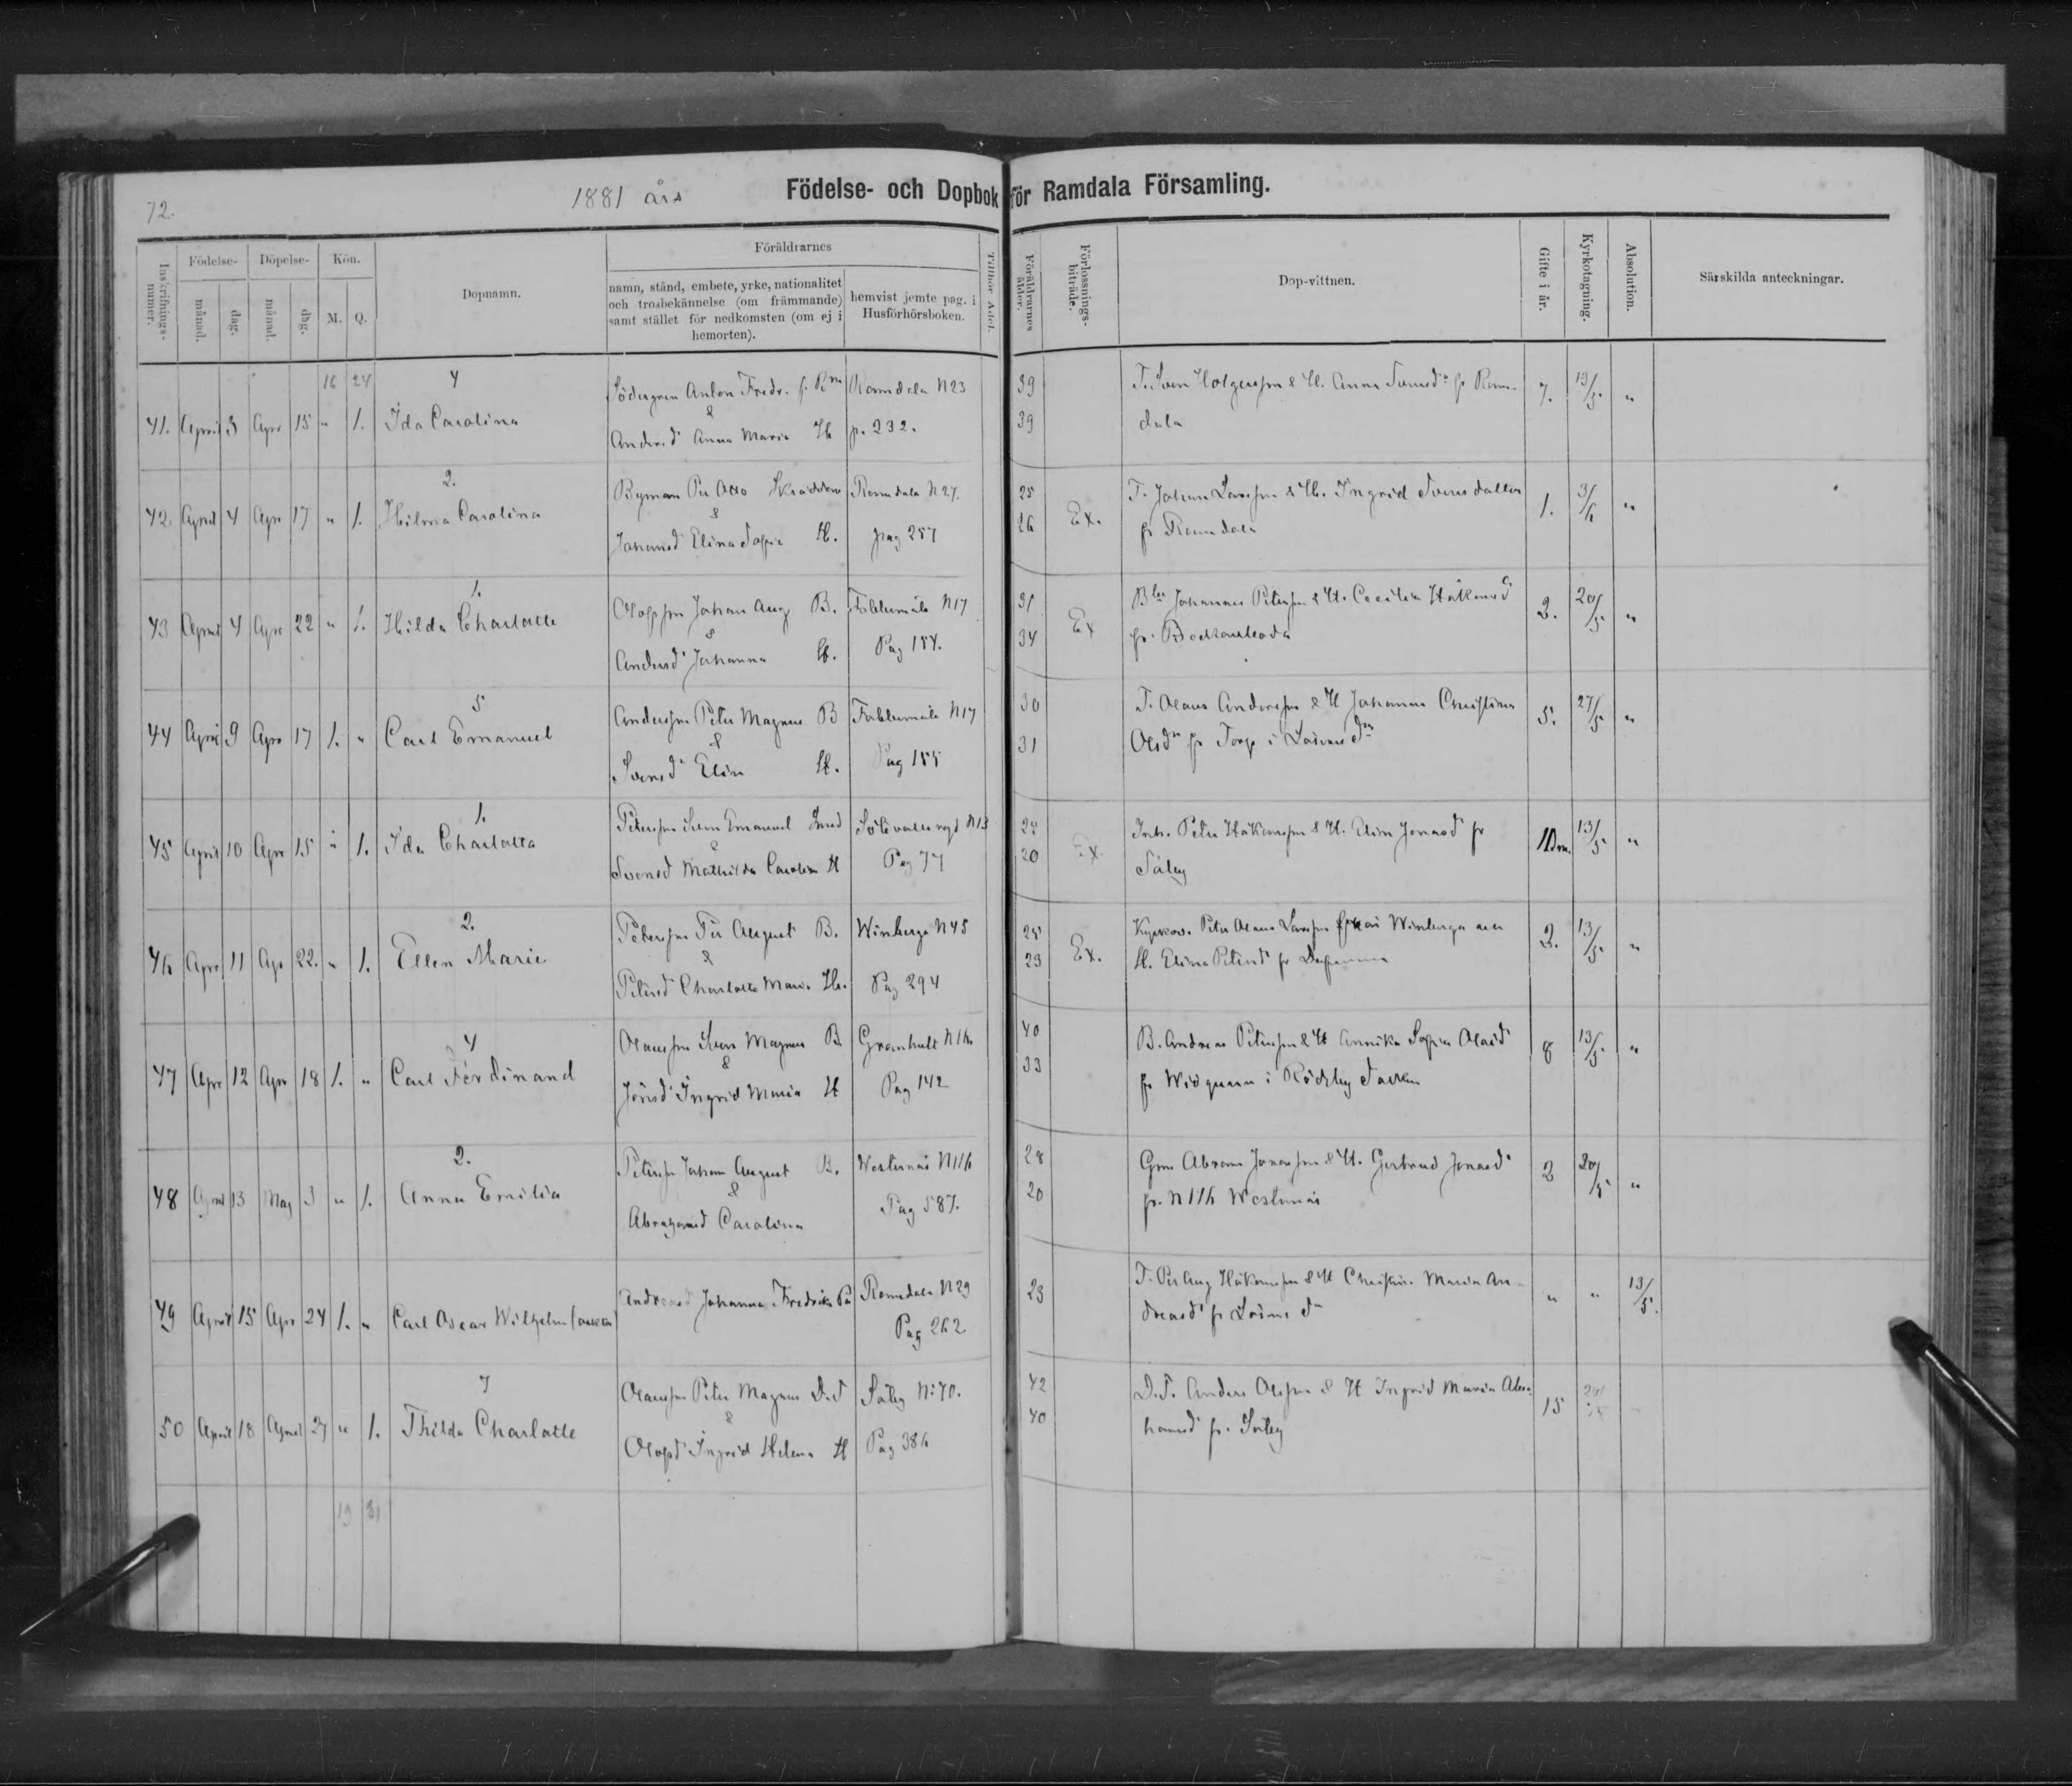 72.
1881 års
Födelse- och Dopbok för Ramdala Församling.
Inskrifnings-nummer.
Födelse-
månad.
dag.
Döpelse-
månad.
dag.
Kön.
M.
Q.
Dopnamn.
Föräldrarnes
namn, stånd, embete, yrke, nationalitet
och trosbekännelse (om främmande)
samt stället för nedkomsten (om ej i
hemorten).
hemvist jemte pag. i
Husförhörsboken.
Tillhör Adel.
Föräldrarnes ålder.
Förlossnings-biträde.
Dop-vittnen.
Gifte i år.
Kyrkotagning.
Absolution.
Särskilda anteckningar.
16 24
4
41. April 3 Apr 15 " 1. Ida Carolina
Södergren Anton Fredr. f. Rm
&
Andersd Anna Maria H
Ramdala N 23
p. 232.
39
39
T. Sven Holgersson & H. Anna Svensdr fr Ram-
dala
7. 13/5. "
2.
42 April 4 Apr 17 " 1. Hilma Carolina
Byman Per Otto Skräddare
&
Johansd Elina Sofia H.
Ramdala N 27.
pag 257
25
26
Ex.
T. Johan Larsson & H. Ingrid Svensdatter
fr Ramdala
1. 3/6 "
1.
43 April 4 Apr 22 " 1. Hilda Charlotte
Olofsson Johan Aug B.
&
Andersd Johanna H.
N 17
Pag 154.
31
34
Ex
Johannes Petersson & H. Cecilia Håkansd
fr.
2. 20/5. "
5
44 April 9 Apr 17 1. " Carl Emanuel
Andersson Peter Magnus B
&
Svensdr Elin H.
N 17
Pag 155
30
31
T. Olaus Andersson & H Johanna Christina
Olsdr fr Torp i
5. 27/5. "
1.
45 April 10 Apr 15 " 1. Ida Charlotta
Petersson Sven Emanuel Smed
&
Svensd Mathilda Carolina H
N 13
Pag 77
20
Ex
Inh. Peter Håkansson & H. Elin Jonasd fr
Säby
13/5. "
2.
46 Apr 11 Apr 22. " 1. Ellen Marie
Petersson Per August B.
&
Petersd Charlotta Maria H.
Winberga N 45
Pag 294
25
23
Ex.
Kyrkov. Peter Olaus Larsson från Winberga och
H. Elina Petersd fr
2. 13/5. "
4
47 Apr 12 Apr 18 1. " Carl Ferdinand
Olausson Sven Magnus B
&
Jönsd Ingrid Maria H
Granhult N 16.
Pag 142
40
33
B. Andreas Petersson & H Annika Sofia Olasd
fr i Rödeby Socken
8 13/5. "
2.
48 April 13 Maj 3 " 1. Anna Emilia
Petersson Johan August B.
&
Abrahamsd Carolina
Westernäs N 116
Pag 587.
28
20
Abram Jonasson & H. Gertrud Jonasd
fr. N 116 Westernäs
2 20/5 "
49 April 15 Apr 24 1. " Carl Oscar Wilhelm (oäkta)
Andreasd Johanna Fredrika
Ramdala N 29
Pag 262
23
T. Per Aug Håkansson & H Christina Maria An-
dreasd fr
" " 13/5.
7
50 April 18 April 27 " 1. Thilda Charlotte
Olausson Peter Magnus D. T
&
Olofsd Ingrid Helena H
Säby N:o 70.
Pag 386
42
40
D. T. Anders Olsson & H Ingrid Maria Abra-
hamsd fr. Säby
15
19 31